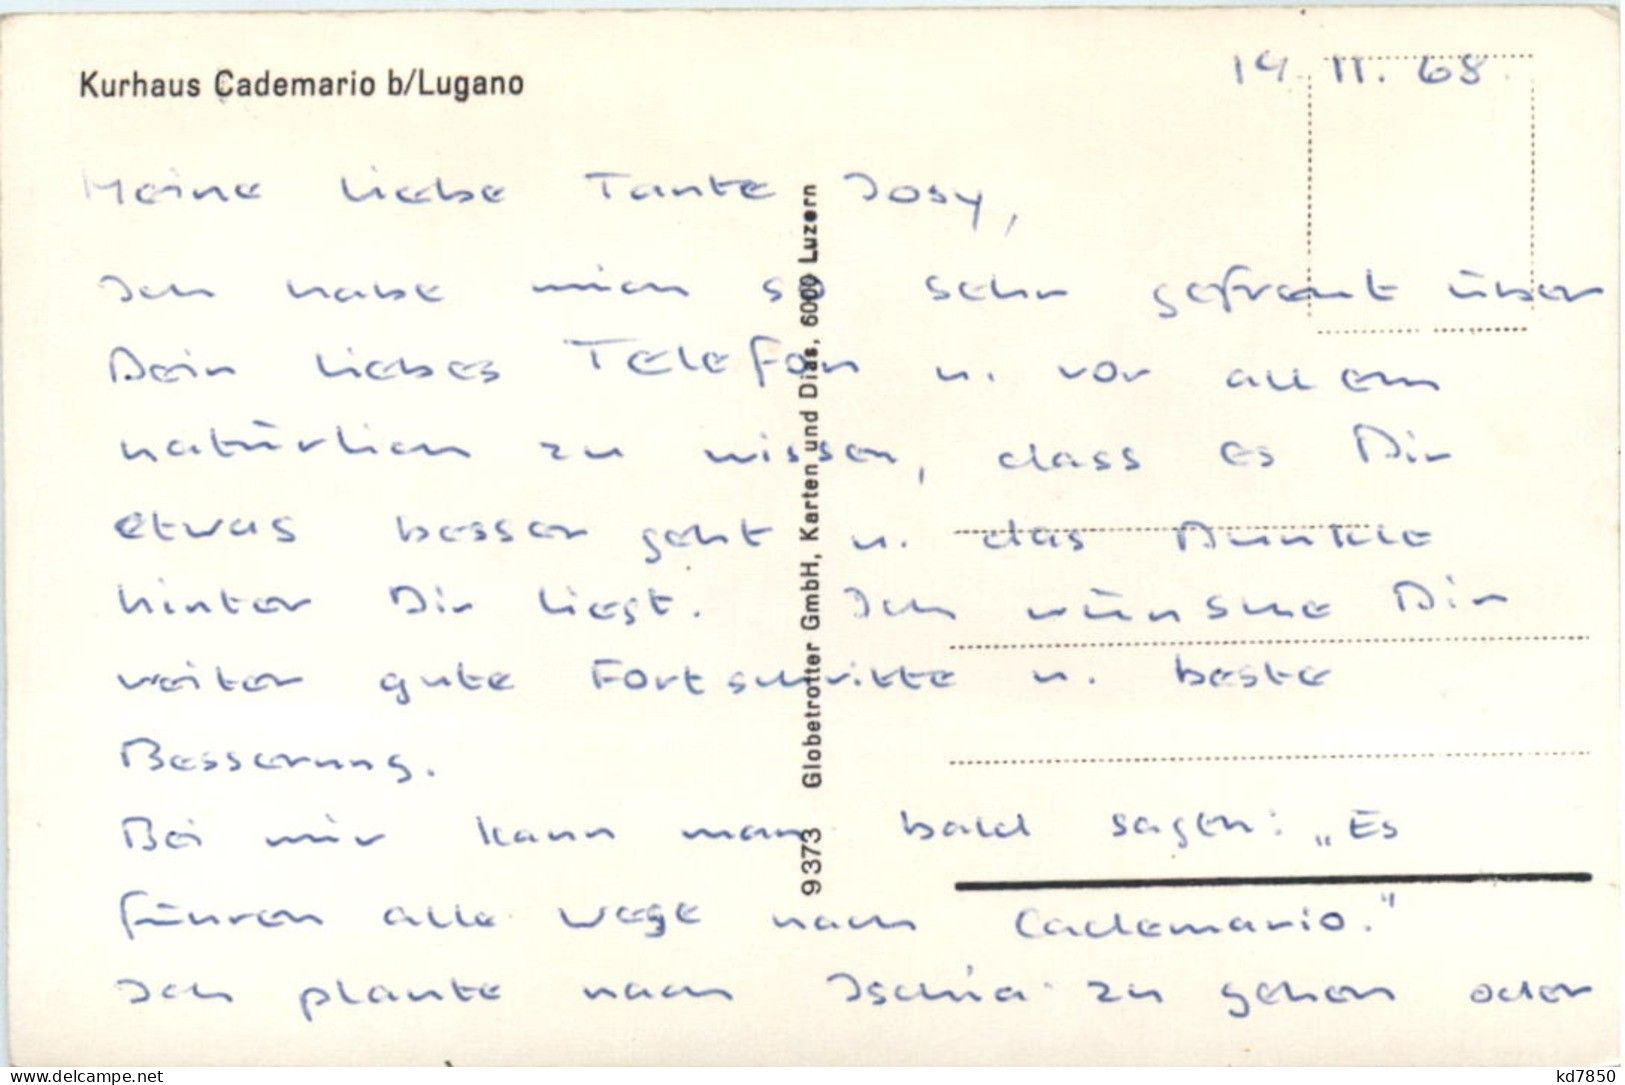 Kurhaus Cademario b/Lugano
14. 11. 68.
Meine liebe Tante Josy,
Ich habe mich so sehr gefreut über
Dein liebes Telefon u. vor allem
natürlich zu wissen, dass es Dir
etwas besser geht u. das Dunkle
hinter Dir liegt. Ich wünsche Dir
weiter gute Fortschritte u. beste
Besserung.
Bei mir kann man bald sagen: „Es
führen alle Wege nach Cademario."
Ich plante nach Ischia zu gehen oder
9373 Globetrotter GmbH, Karten und Dias, 6000 Luzern
www.delcampe.net
kd7850